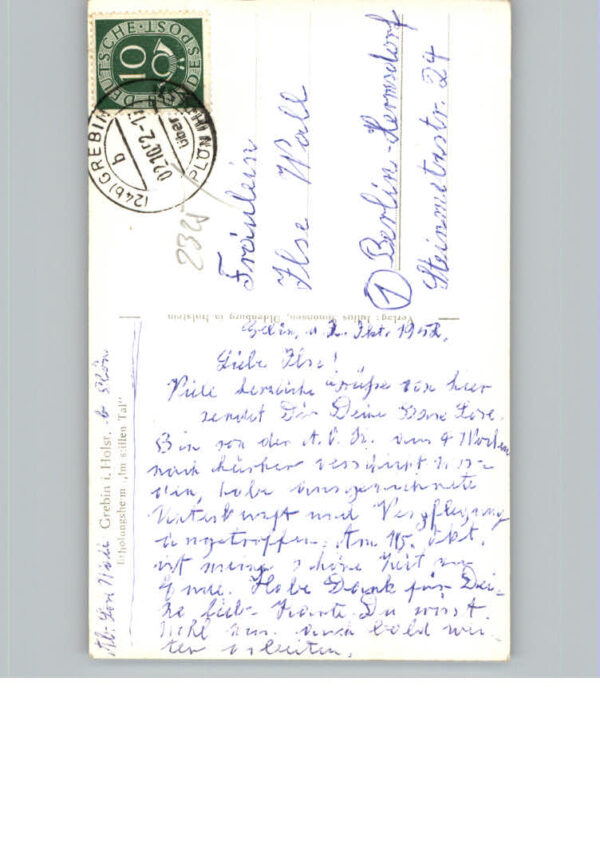 DEUTSCHE BUNDESPOST
10
(24b) GREBIN
über
PLÖN (HOLST)
b
02.10.52
2325
Fräulein
Ilse Wall
1 Berlin-Hermsdorf
Steinmetzstr. 24
Verlag: Julius Simonsen, Oldenburg in Holstein
Grebin, d. 2. Okt. 1952.
Liebe Ilse!
Viele herzliche Grüße von hier
sendet Dir Deine Lore.
Bin von der auf 4 Wochen
nach hierher verschickt
habe ausgezeichnete
Unterkunft und Verpflegung
angetroffen. Am 15. Okt.
ist meine schöne Zeit zu
Ende. Habe Dank für Dei-
ne liebe Karte. Du wirst
wohl nun auch bald wei-
ter arbeiten.
Grebin i. Holst. b. Plön
Erholungsheim „Im stillen Tal"